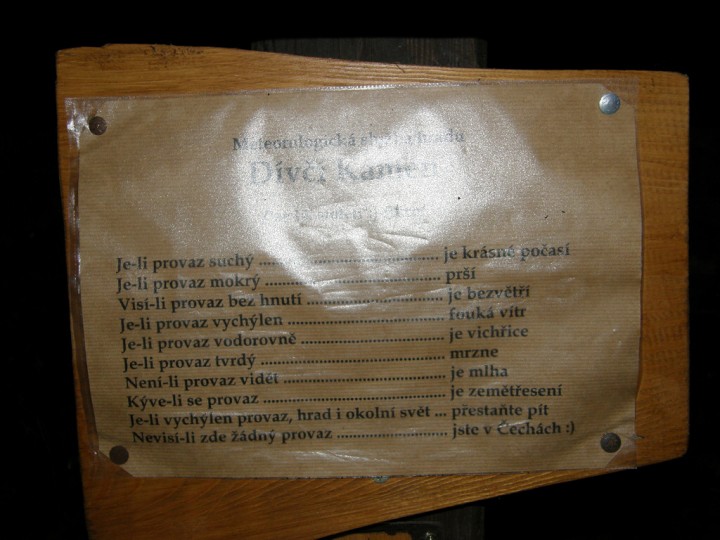 Meteorologická služba hradu
Dívčí Kámen
Je-li provaz suchý ........................................ je krásné počasí
Je-li provaz mokrý ........................................ prší
Visí-li provaz bez hnutí ............................... je bezvětří
Je-li provaz vychýlen ................................... fouká vítr
Je-li provaz vodorovně ................................ je vichřice
Je-li provaz tvrdý ......................................... mrzne
Není-li provaz vidět .................................... je mlha
Kýve-li se provaz ......................................... je zemětřesení
Je-li vychýlen provaz, hrad i okolní svět ... přestaňte pít
Nevisí-li zde žádný provaz ........................ jste v Čechách :)